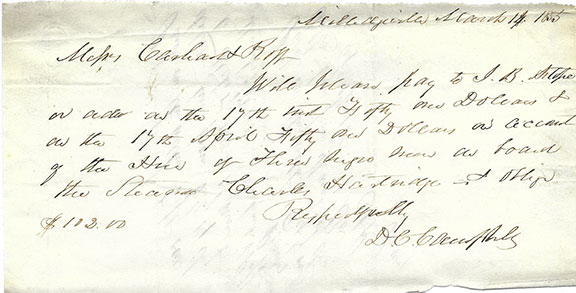 Milledgeville March 14, 1855
Messrs Carhart & Roff
Will please pay to J. B.
or order on the 17th inst Fifty one Dollars &
on the 17th April Fifty one Dollars on account
of the Hire of Three Negro men on board
the Steamer Charles Hartridge & oblige
Respectfully
D. C. Campbell
$102.00